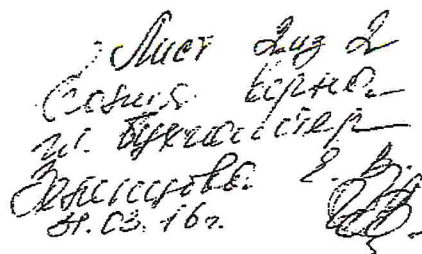 Лист 2 из 2
Копия верна
гл. бухгалтер
Е. В.
31.03.16г.